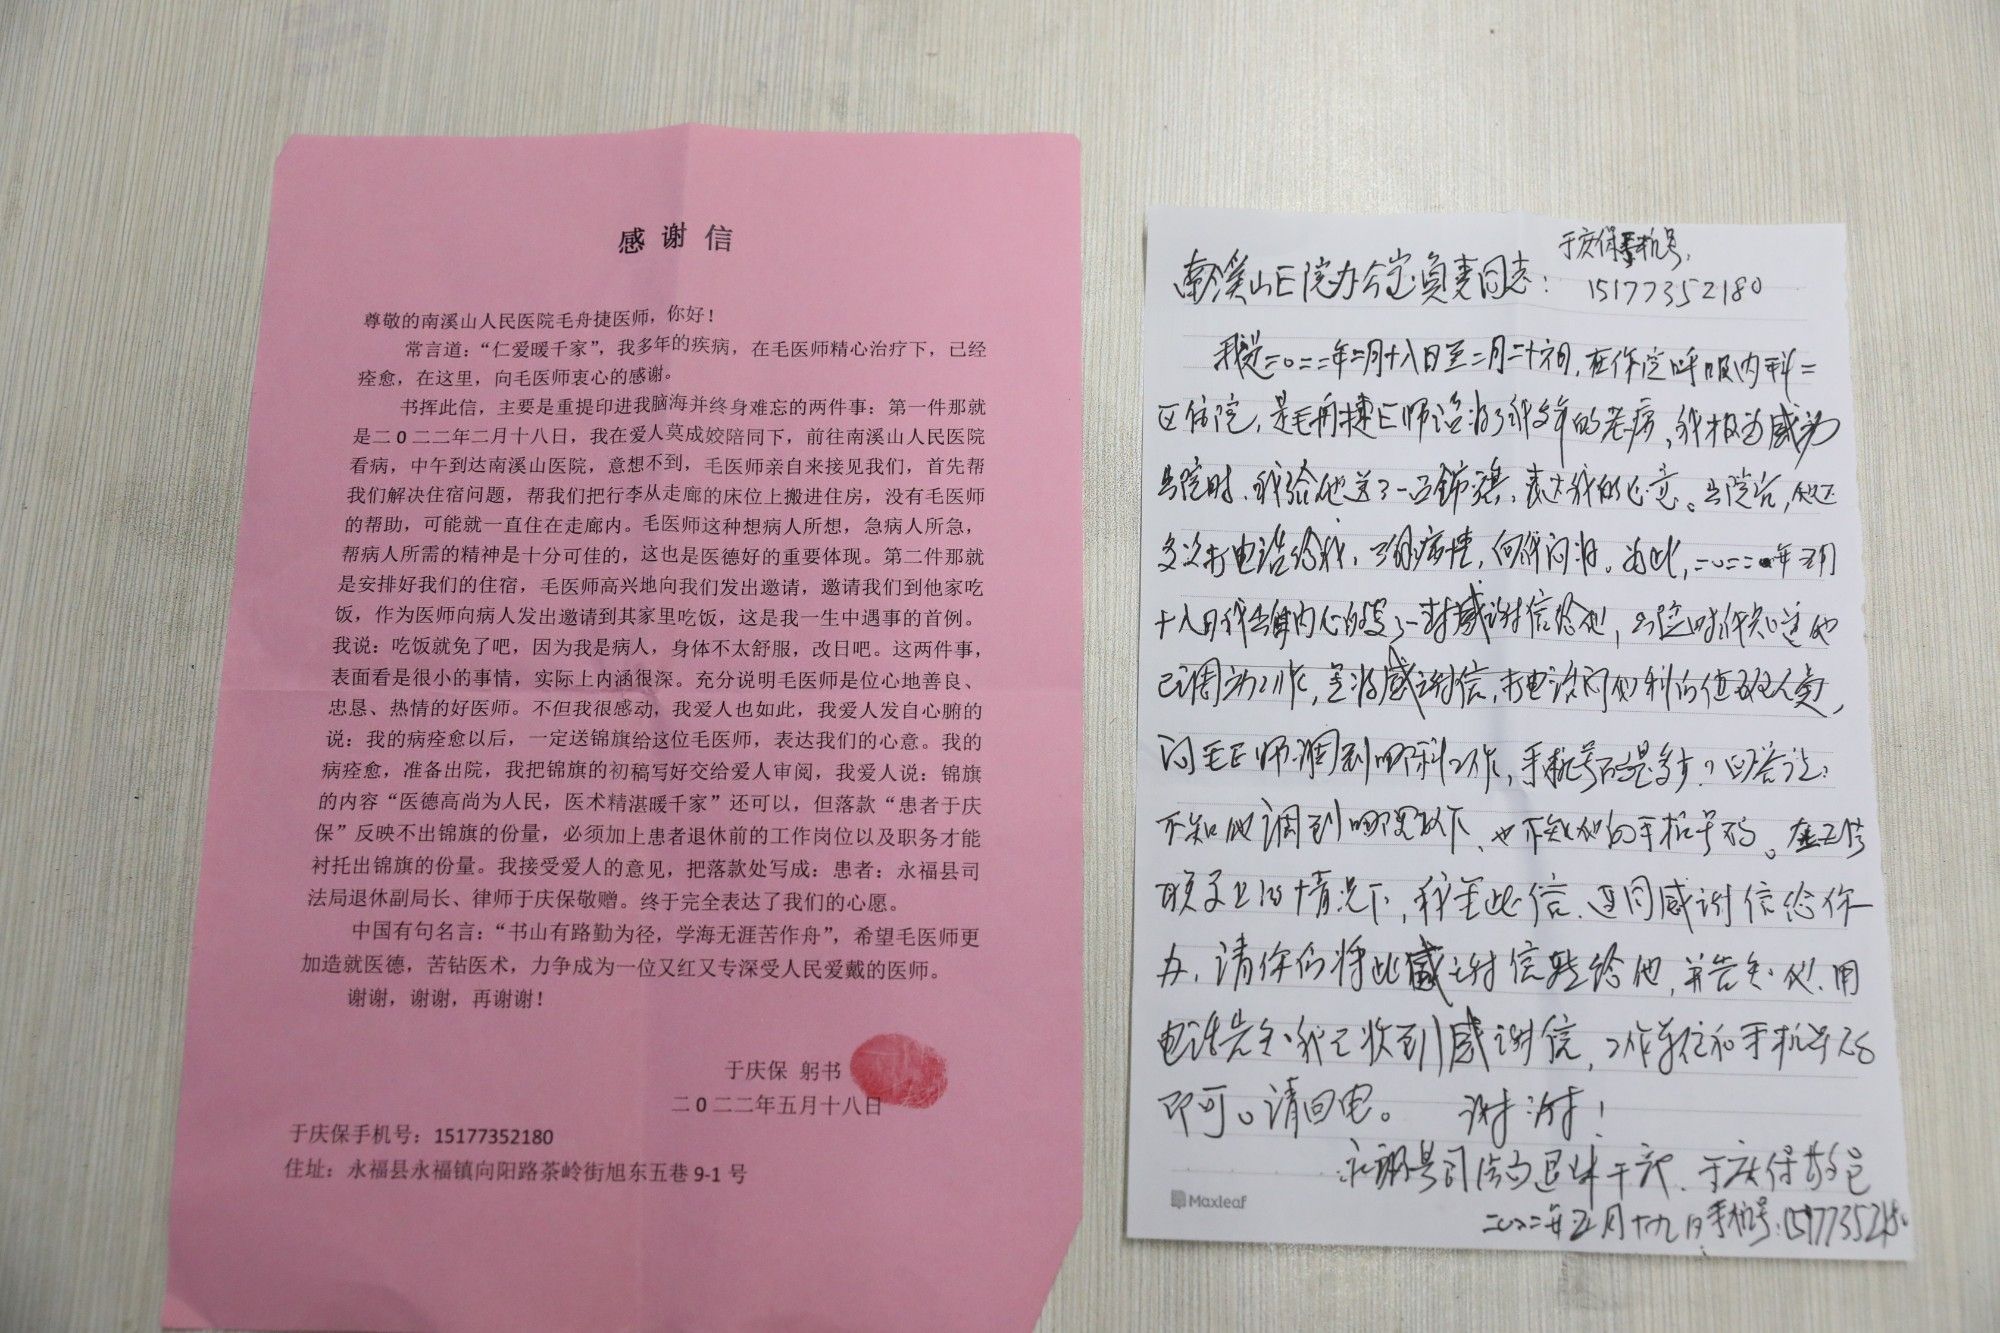 感谢信
尊敬的南溪山人民医院毛舟捷医师，你好！
常言道：“仁爱暖千家”，我多年的疾病，在毛医师精心治疗下，已经
痊愈，在这里，向毛医师衷心的感谢。
书挥此信，主要是重提印进我脑海并终身难忘的两件事：第一件那就
是二0二二年二月十八日，我在爱人莫成姣陪同下，前往南溪山人民医院
看病，中午到达南溪山医院，意想不到，毛医师亲自来接见我们，首先帮
我们解决住宿问题，帮我们把行李从走廊的床位上搬进住房，没有毛医师
的帮助，可能就一直住在走廊内。毛医师这种想病人所想，急病人所急，
帮病人所需的精神是十分可佳的，这也是医德好的重要体现。第二件那就
是安排好我们的住宿，毛医师高兴地向我们发出邀请，邀请我们到他家吃
饭，作为医师向病人发出邀请到其家里吃饭，这是我一生中遇事的首例。
我说：吃饭就免了吧，因为我是病人，身体不太舒服，改日吧。这两件事，
表面看是很小的事情，实际上内涵很深。充分说明毛医师是位心地善良、
忠恳、热情的好医师。不但我很感动，我爱人也如此，我爱人发自心腑的
说：我的病痊愈以后，一定送锦旗给这位毛医师，表达我们的心意。我的
病痊愈，准备出院，我把锦旗的初稿写好交给爱人审阅，我爱人说：锦旗
的内容“医德高尚为人民，医术精湛暖千家”还可以，但落款“患者于庆
保”反映不出锦旗的份量，必须加上患者退休前的工作岗位以及职务才能
衬托出锦旗的份量。我接受爱人的意见，把落款处写成：患者：永福县司
法局退休副局长、律师于庆保敬赠。终于完全表达了我们的心愿。
中国有句名言：“书山有路勤为径，学海无涯苦作舟”，希望毛医师更
加造就医德，苦钻医术，力争成为一位又红又专深受人民爱戴的医师。
谢谢，谢谢，再谢谢！
于庆保 躬书
二0二二年五月十八日
于庆保手机号：15177352180
住址：永福县永福镇向阳路茶岭街旭东五巷 9-1 号
于庆保手机号，
南溪山医院办公室负责同志： 15177352180
我是二〇二二年二月十八日至二月二十六日，在你院呼吸内科二
区住院，是毛舟捷医师治好了我多年的老病，我极为感动
出院时，我给他送了一面锦旗，表达我的心意。出院后，他还
多次打电话给我，了解病情，问我问好。为此，二〇二二年五月
十八日我出自内心的写了一封感谢信给他，出院时我知道他
已调动工作，是该感谢信，打电话问他科的值班人员，
问毛医师调到哪科工作，手机号码是多少？回答说：
不知他调到哪里以下，也不知他的手机号码。在无法
联系上的情况下，我写此信，连同感谢信给你
办，请你们将此感谢信转给他，并告知他，用
电话告知我已收到感谢信，工作单位和手机号码
即可。请回电。 谢谢！
永福县司法局退休干部，于庆保敬笔
二〇二二年五月十九日 手机号：15177352180
Maxleaf